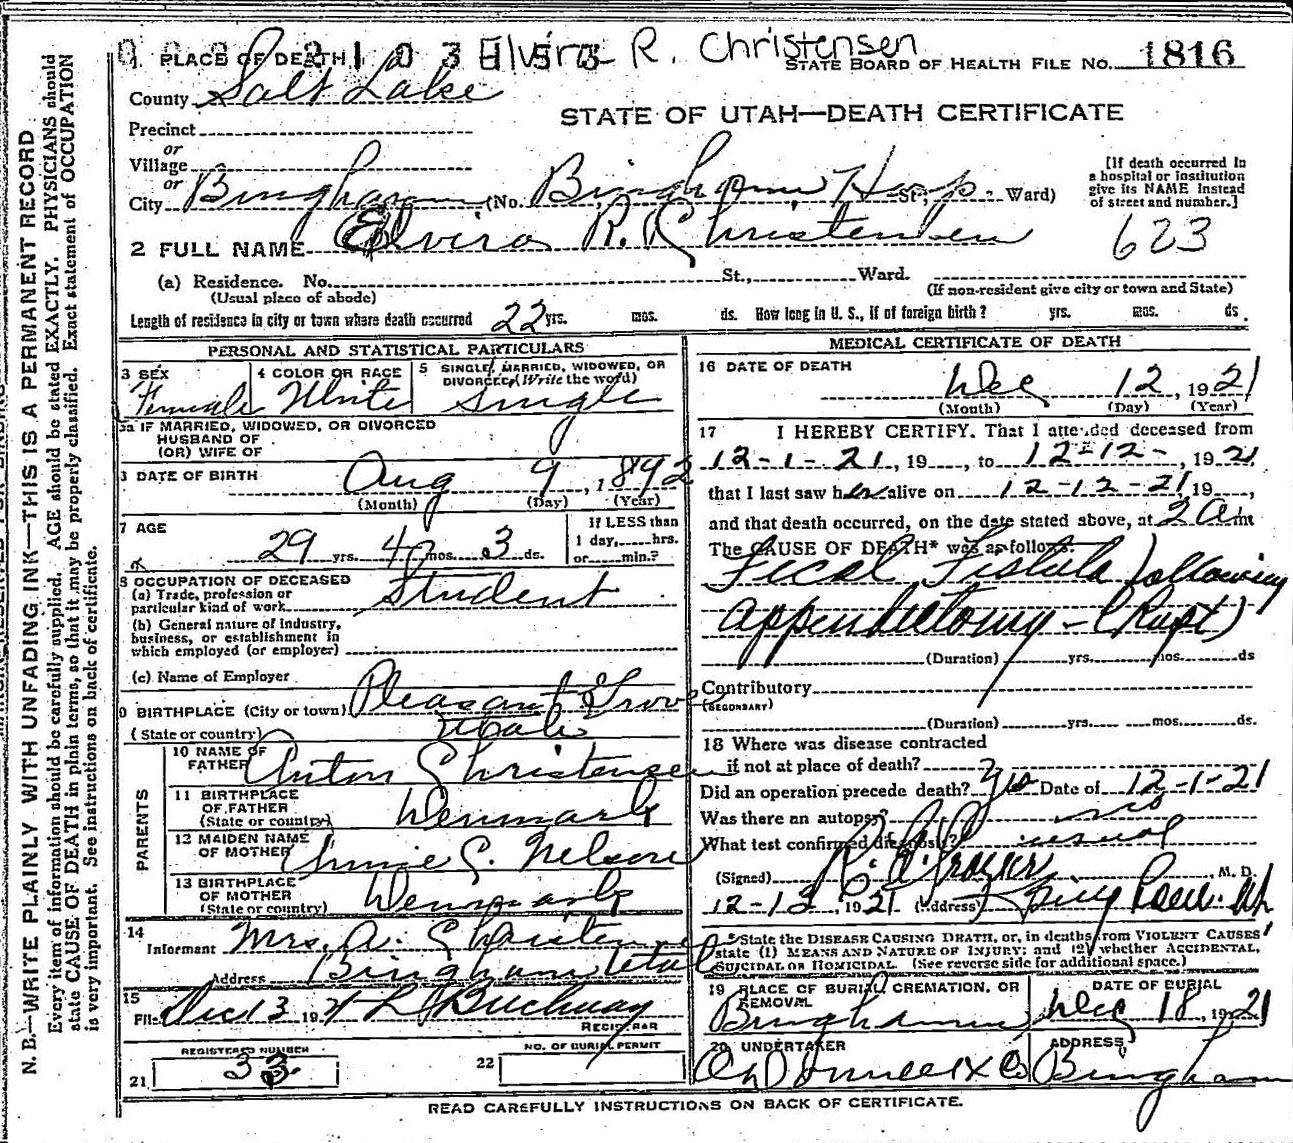 Elvira R. Christensen
1 PLACE OF DEATH
STATE BOARD OF HEALTH FILE NO. 1816
County Salt Lake
STATE OF UTAH—DEATH CERTIFICATE
Precinct
or
Village
or
City Bingham (No. Bingham Hosp. St., Ward)
[If death occurred in
a hospital or institution
give its NAME instead
of street and number.]
623
2 FULL NAME Elvira R. Christensen
(a) Residence. No. St., Ward.
(Usual place of abode)
(If non-resident give city or town and State)
Length of residence in city or town where death occurred 22 yrs. mos. ds. How long in U. S., if of foreign birth? yrs. mos. ds.
PERSONAL AND STATISTICAL PARTICULARS
3 SEX Female
4 COLOR OR RACE White
5 SINGLE, MARRIED, WIDOWED, OR
DIVORCED (Write the word)
Single
5a IF MARRIED, WIDOWED, OR DIVORCED
HUSBAND OF
(OR) WIFE OF
DATE OF BIRTH Aug 9, 1892
(Month) (Day) (Year)
7 AGE
29 yrs. 4 mos. 3 ds.
If LESS than
1 day, hrs.
or min.?
8 OCCUPATION OF DECEASED
(a) Trade, profession or
particular kind of work Student
(b) General nature of industry,
business, or establishment in
which employed (or employer)
(c) Name of Employer
9 BIRTHPLACE (City or town) Pleasant Grove
(State or country) Utah
PARENTS
10 NAME OF
FATHER Anton Christensen
11 BIRTHPLACE
OF FATHER
(State or country) Denmark
12 MAIDEN NAME
OF MOTHER Annie C. Nelson
13 BIRTHPLACE
OF MOTHER
(State or country) Denmark
14
Informant Mrs. A. Christensen
Address Bingham Utah
15
Filed Dec 13 1921
REGISTRAR
REGISTERED NUMBER
21 33
NO. OF BURIAL PERMIT
22
MEDICAL CERTIFICATE OF DEATH
16 DATE OF DEATH
Dec 12, 1921
(Month) (Day) (Year)
17 I HEREBY CERTIFY. That I attended deceased from
12-1-21, 19 , to 12-12-, 1921
that I last saw her alive on 12-12-21, 19 ,
and that death occurred, on the date stated above, at 2 a m
The CAUSE OF DEATH* was as follows:
Fecal Fistula following
appendectomy - (Rupt)
(Duration) yrs. mos. ds
Contributory
(SECONDARY)
(Duration) yrs. mos. ds.
18 Where was disease contracted
if not at place of death?
Did an operation precede death? yes Date of 12-1-21
Was there an autopsy? no
What test confirmed diagnosis? usual
(Signed) M. D.
12-13, 1921 (Address)
*State the DISEASE CAUSING DEATH, or, in deaths from VIOLENT CAUSES
state (1) MEANS AND NATURE OF INJURY; and (2) whether ACCIDENTAL,
SUICIDAL OR HOMICIDAL. (See reverse side for additional space.)
19 PLACE OF BURIAL, CREMATION, OR
REMOVAL
Bingham
DATE OF BURIAL
Dec 18, 1921
20 UNDERTAKER
O'Donnell & Co
ADDRESS
Bingham
READ CAREFULLY INSTRUCTIONS ON BACK OF CERTIFICATE.
N. B.—WRITE PLAINLY WITH UNFADING INK—THIS IS A PERMANENT RECORD
Every item of information should be carefully supplied. AGE should be stated EXACTLY. PHYSICIANS should
state CAUSE OF DEATH in plain terms, so that it may be properly classified. Exact statement of OCCUPATION
is very important. See instructions on back of certificate.